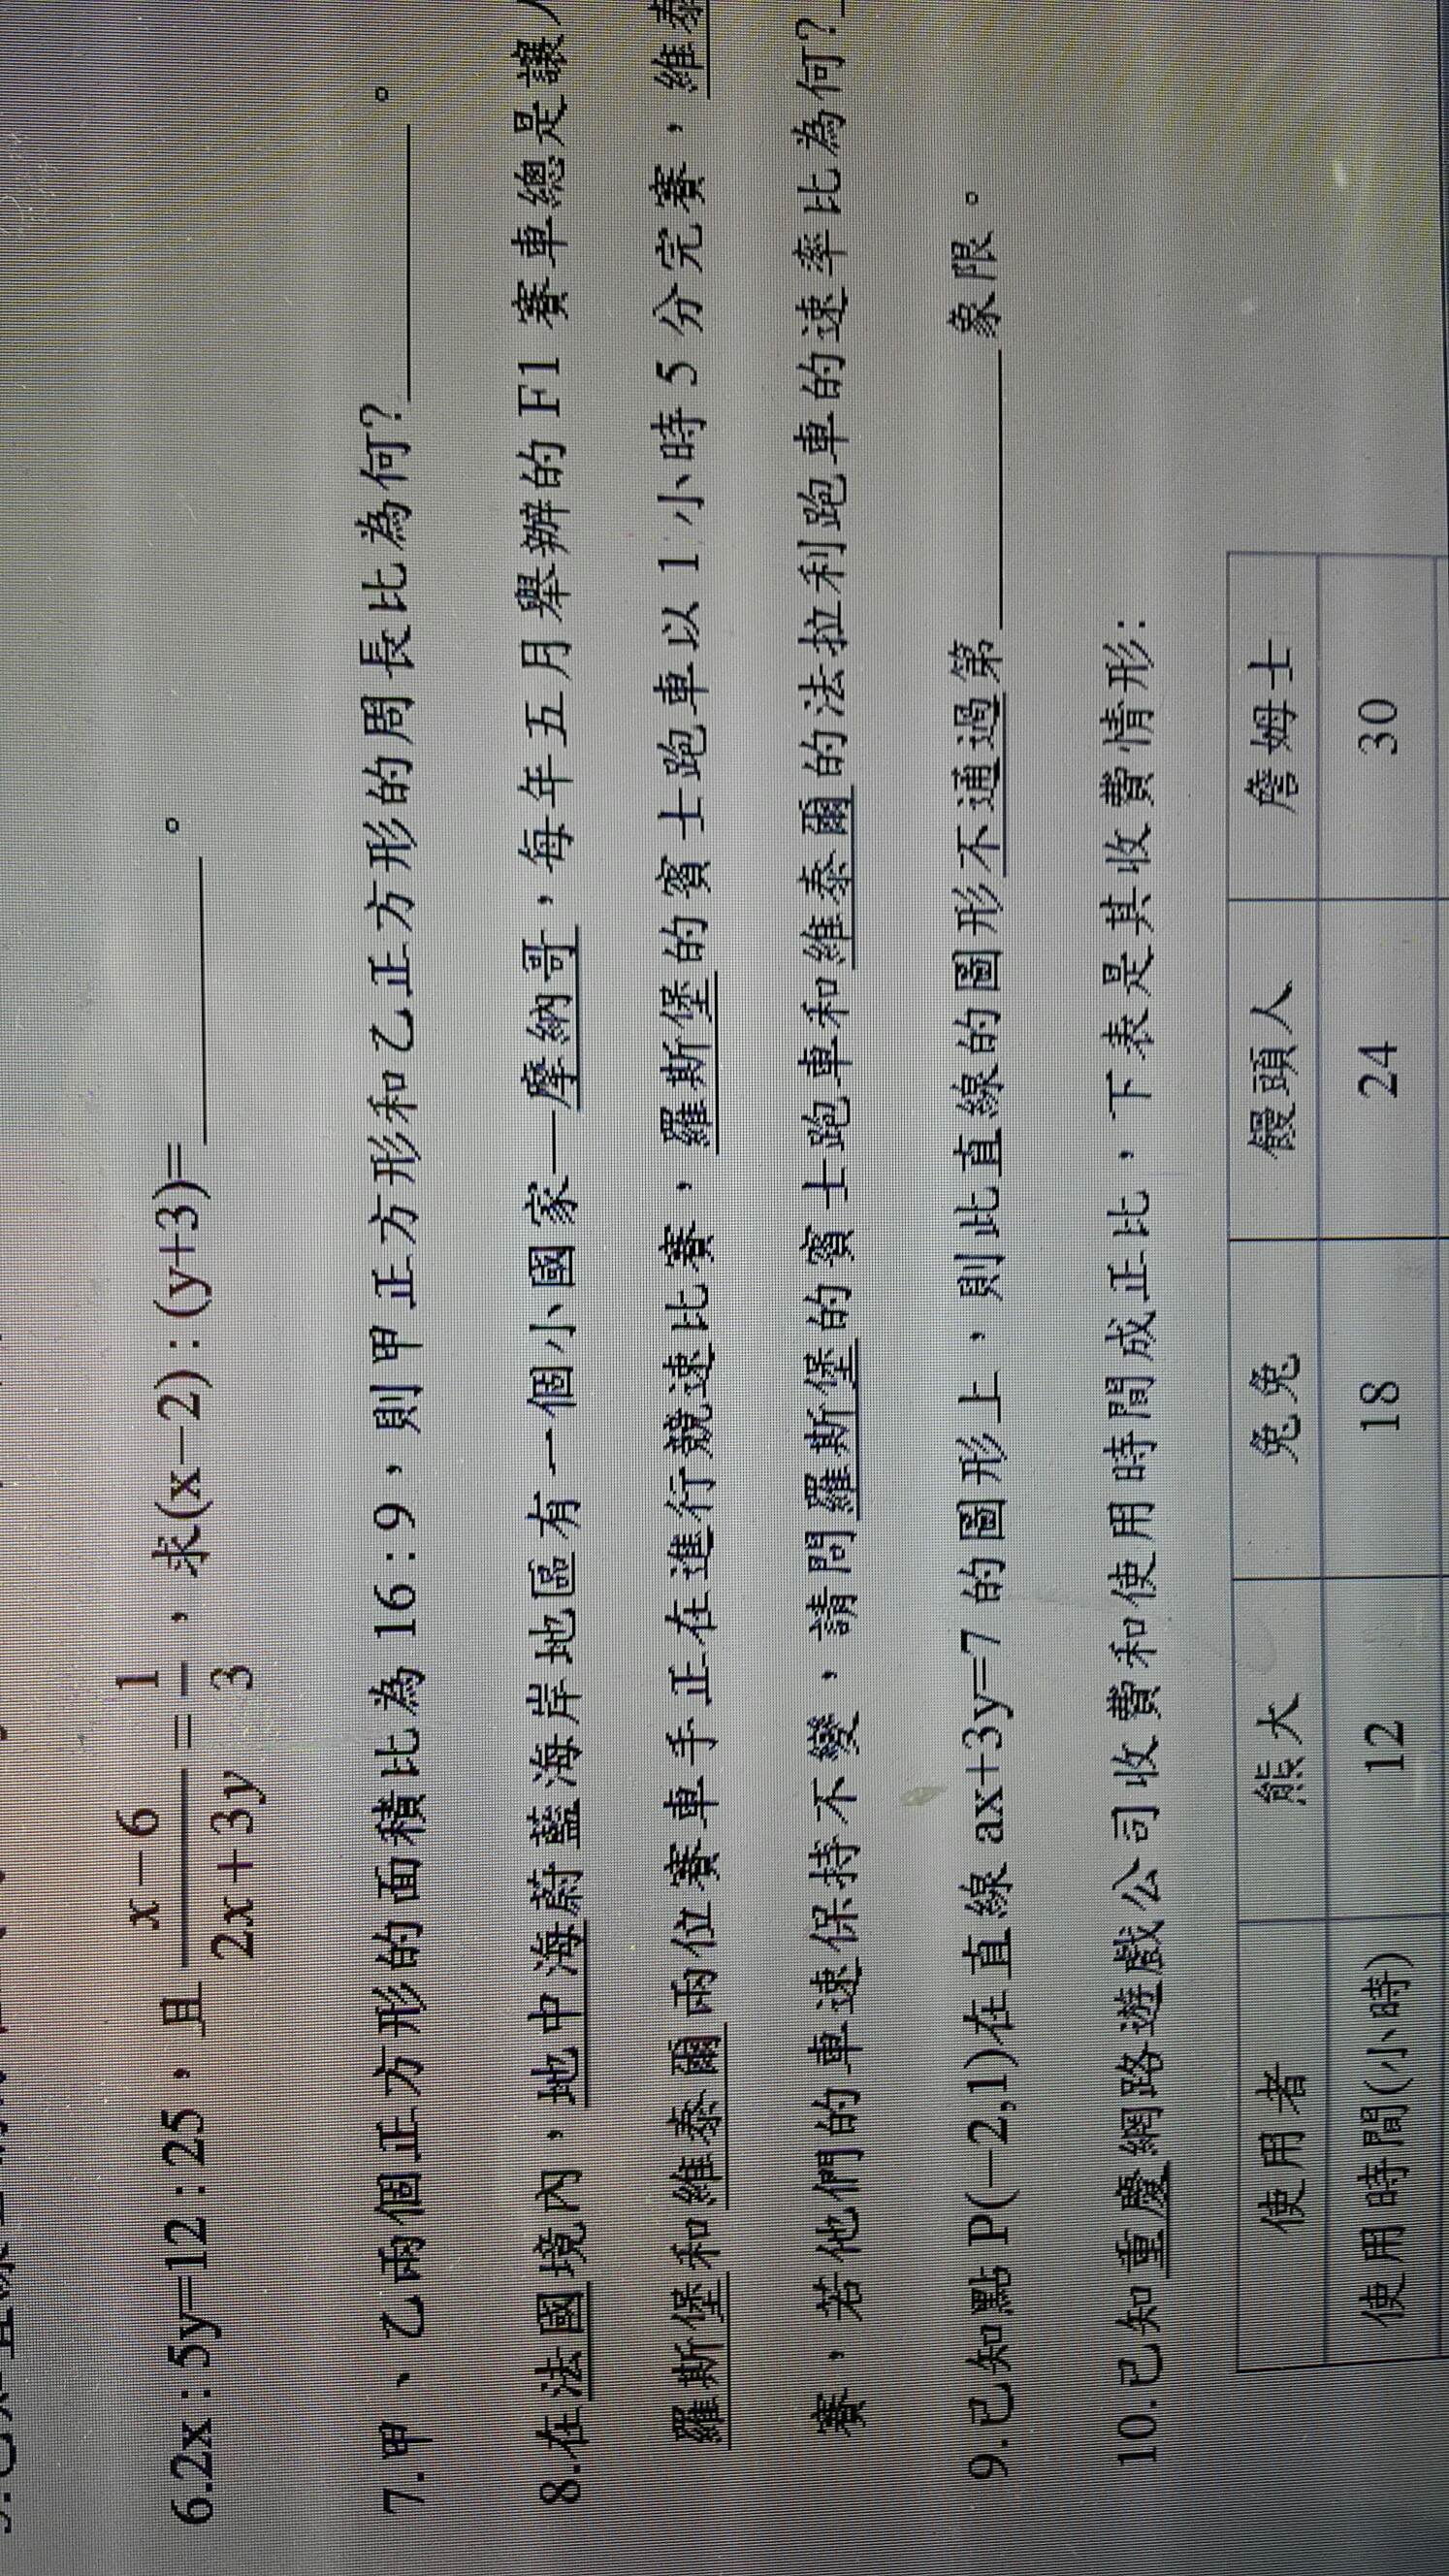 6.2x : 5y=12 : 25，且 x−6 / 2x+3y = 1 / 3 ，求(x−2) : (y+3)=__________。
7. 甲、乙兩個正方形的面積比為 16 : 9，則甲正方形和乙正方形的周長比為何?__________。
8.在法國境內，地中海蔚藍海岸地區有一個小國家—摩納哥，每年五月舉辦的 F1 賽車總是讓
羅斯堡和維泰爾兩位賽車手正在進行競速比賽，羅斯堡的賓士跑車以 1 小時 5 分完賽，維泰
賽，若他們的車速保持不變，請問羅斯堡的賓士跑車和維泰爾的法拉利跑車的速率比為何?
9.已知點 P(−2,1)在直線 ax+3y=7 的圖形上，則此直線的圖形不通過第__________象限。
10.已知重慶網路遊戲公司收費和使用時間成正比，下表是其收費情形:
使用者 熊大 兔兔 饅頭人 詹姆士
使用時間(小時) 12 18 24 30